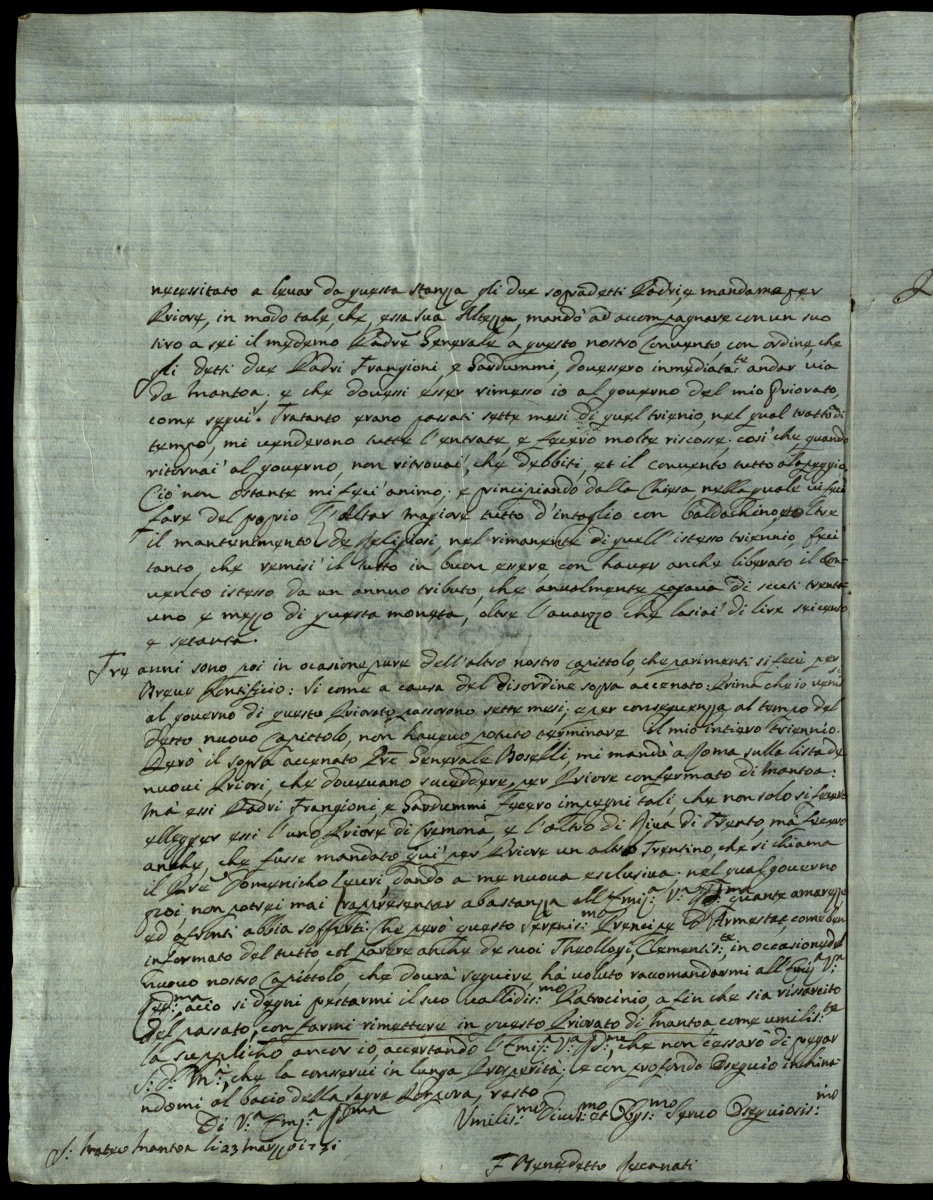 necessitato a levar da questa stanza gli due sopradetti Padri e mandarne per
Priore, in modo tale, che, essa sua Altezza, mandò ad accompagnare con un suo
tiro a sei il medemo Padre Generale a questo nostro Convento, con ordine, che
gli detti due Padri Frangioni, e Sardummi, dovessero inmediata:te andar via
da Mantoa; e che dovessi esser rimesso io al governo del mio Priorato,
come seguì. Tratanto erano passati sette mesi di quel trienio, nel qual tratto di
tempo, mi venderono tutte l'entrate, e fecero molte riscosse. così che, quando
ritornai al governo, non ritrovai, che debbiti, et il convento tutto alla peggio.
Ciò non ostante mi feci animo; e principiando dalla Chiesa, nella quale vi feci
fare del proprio l'Altar magiore tutto d'intaglio con Baldachino, oltre
il mantenimento de Religiosi, nel rimanente di quell'istesso triennio, feci
tanto, che remisi il tutto in buon essere con haver anche liberato il Con-
vento istesso da un annuo tributo, che anualmente pagava di scuti trenta
uno e mezzo di questa moneta, oltre l'avanzo che lasiai di lire seicento
e setanta.
Tre anni sono poi in ocasione pure dell'altro nostro capittolo, che parimenti si fece per
Breve Pontificio: si come a causa del disordine sopra accenato: prima che io venissi
al governo di questo Priorato passorono sette mesi; e per conseguenza al tempo del
detto nuovo Capittolo, non havevo potuto terminare il mio intiero Triennio.
Però il sopra accenato Pre Generale Boselli, mi mandò a Roma sulla lista de
nuovi Priori, che dovevano succedere, per Priore confermato di Mantoa:
Mà essi Padri Frangioni, e Sardummi fecero impegni tali che non solo si fecero
elleger essi l'uno Priore di Cremona, e l'altro di Riva di Trento, mà fecero
anche, che fusse mandato qui per Priore un altro Trentino, che si chiama
il Pre Domenicho Leuri, dando a me nuova esclusiva. nel qual governo
poi, non potrei mai rappresentar abastanza all'Emi:a V:a R:ma quante amarezze
ed afronti abbia sofferti: che però questo Serenis:mo Prencipe d'Armestat, come ben
informato del tutto col parere anche de suoi Theollogi, Clementis:te, in occasione del
nuovo nostro Capittolo, che dovrà seguire, hà voluto racomandarmi all'Emi:a V:a
Rev:ma, acio si degni prestarmi il suo vallidis:mo Patrocinio, a fin che sia rissarcito
del passato, con farmi rimettere in questo Priorato di Mantoa, come umilis:te
la supplicho ancor io, accertando l'Emi:a V:a R:ma, che non cessarò di pregar
S: D: M:a, che la conservi in lunga Prosperità; e con profondo Osequio inchina-
ndomi al bacio della Sagra Porpora, resto
Di V:a Emi:a R:ma
Umilis:mo Divot:mo et Obgs:mo Servo Osequiosis:mo
S: Mateo Mantoa li 23 marzo 1731
F Benedetto Recanati